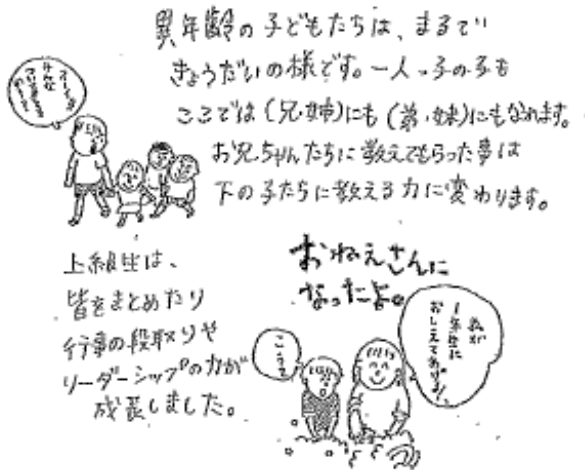 異年齢の子どもたちは、まるで
きょうだいの様です。一人っ子の子も
ここでは(兄・姉)にも(弟・妹)にもなれます。
お兄ちゃんたちに教えてもらった事は
下の子たちに教える力に変わります。
みんな
上級生は、
皆をまとめたり
行事の段取りや
リーダーシップの力が
成長しました。
おねえさんに
なったよ。
私が
1年生に
おしえてあげる!
こうよ